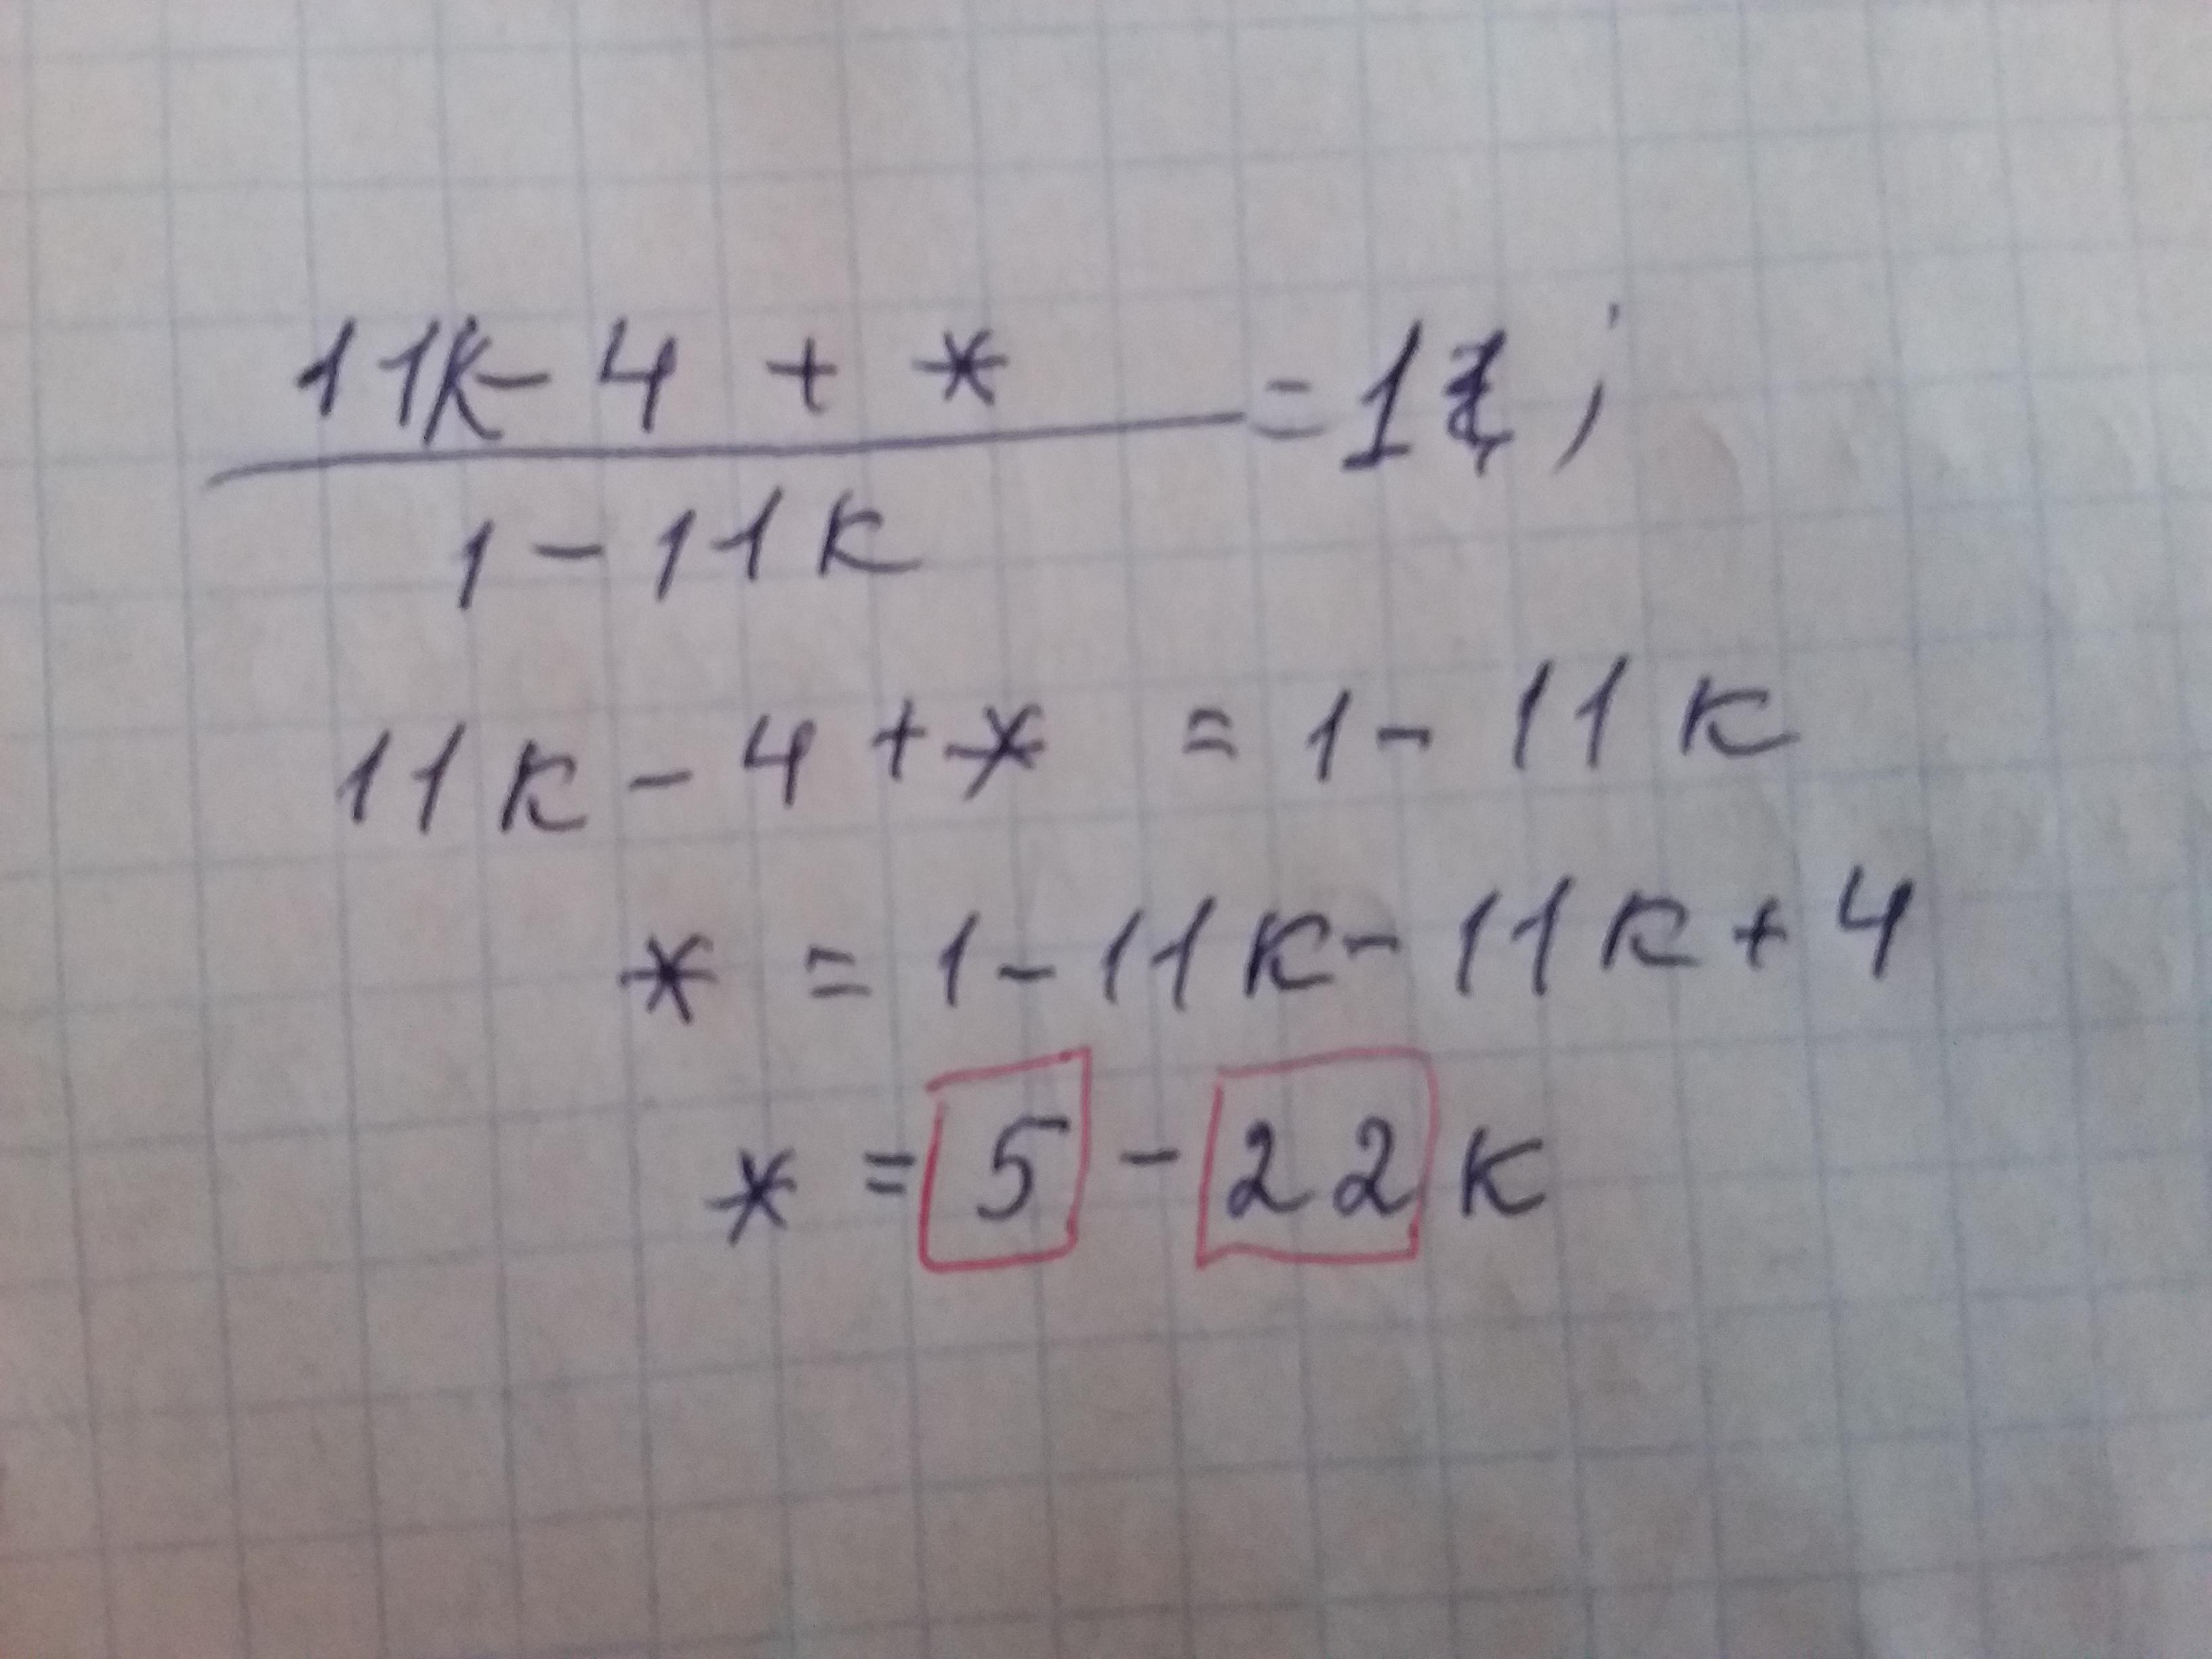 11k - 4 + *
= 1 ;
1 - 11k
11k - 4 + * = 1 - 11k
* = 1 - 11k - 11k + 4
* = 5 - 22k